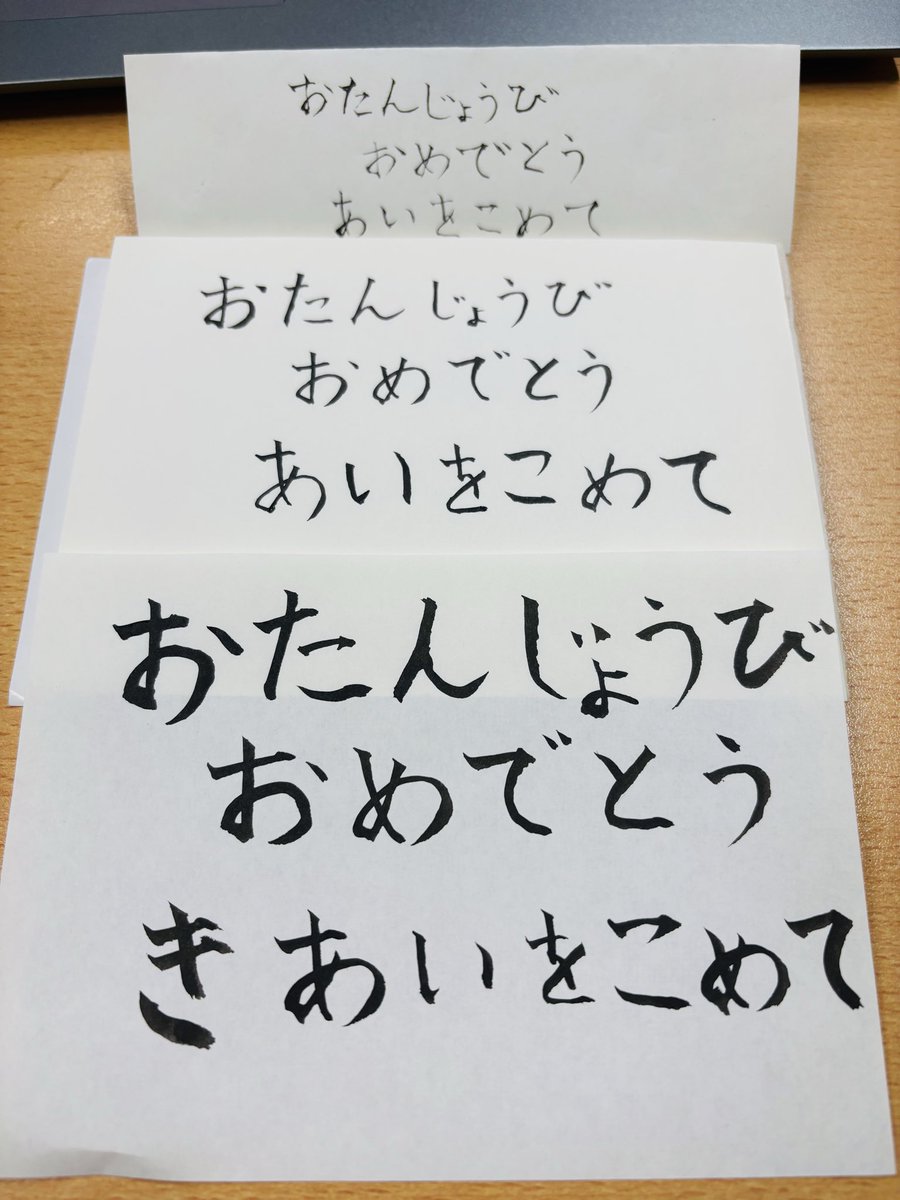 おたんじょうび
おめでとう
あいをこめて
おたんじょうび
おめでとう
あいをこめて
おたんじょうび
おめでとう
きあいをこめて